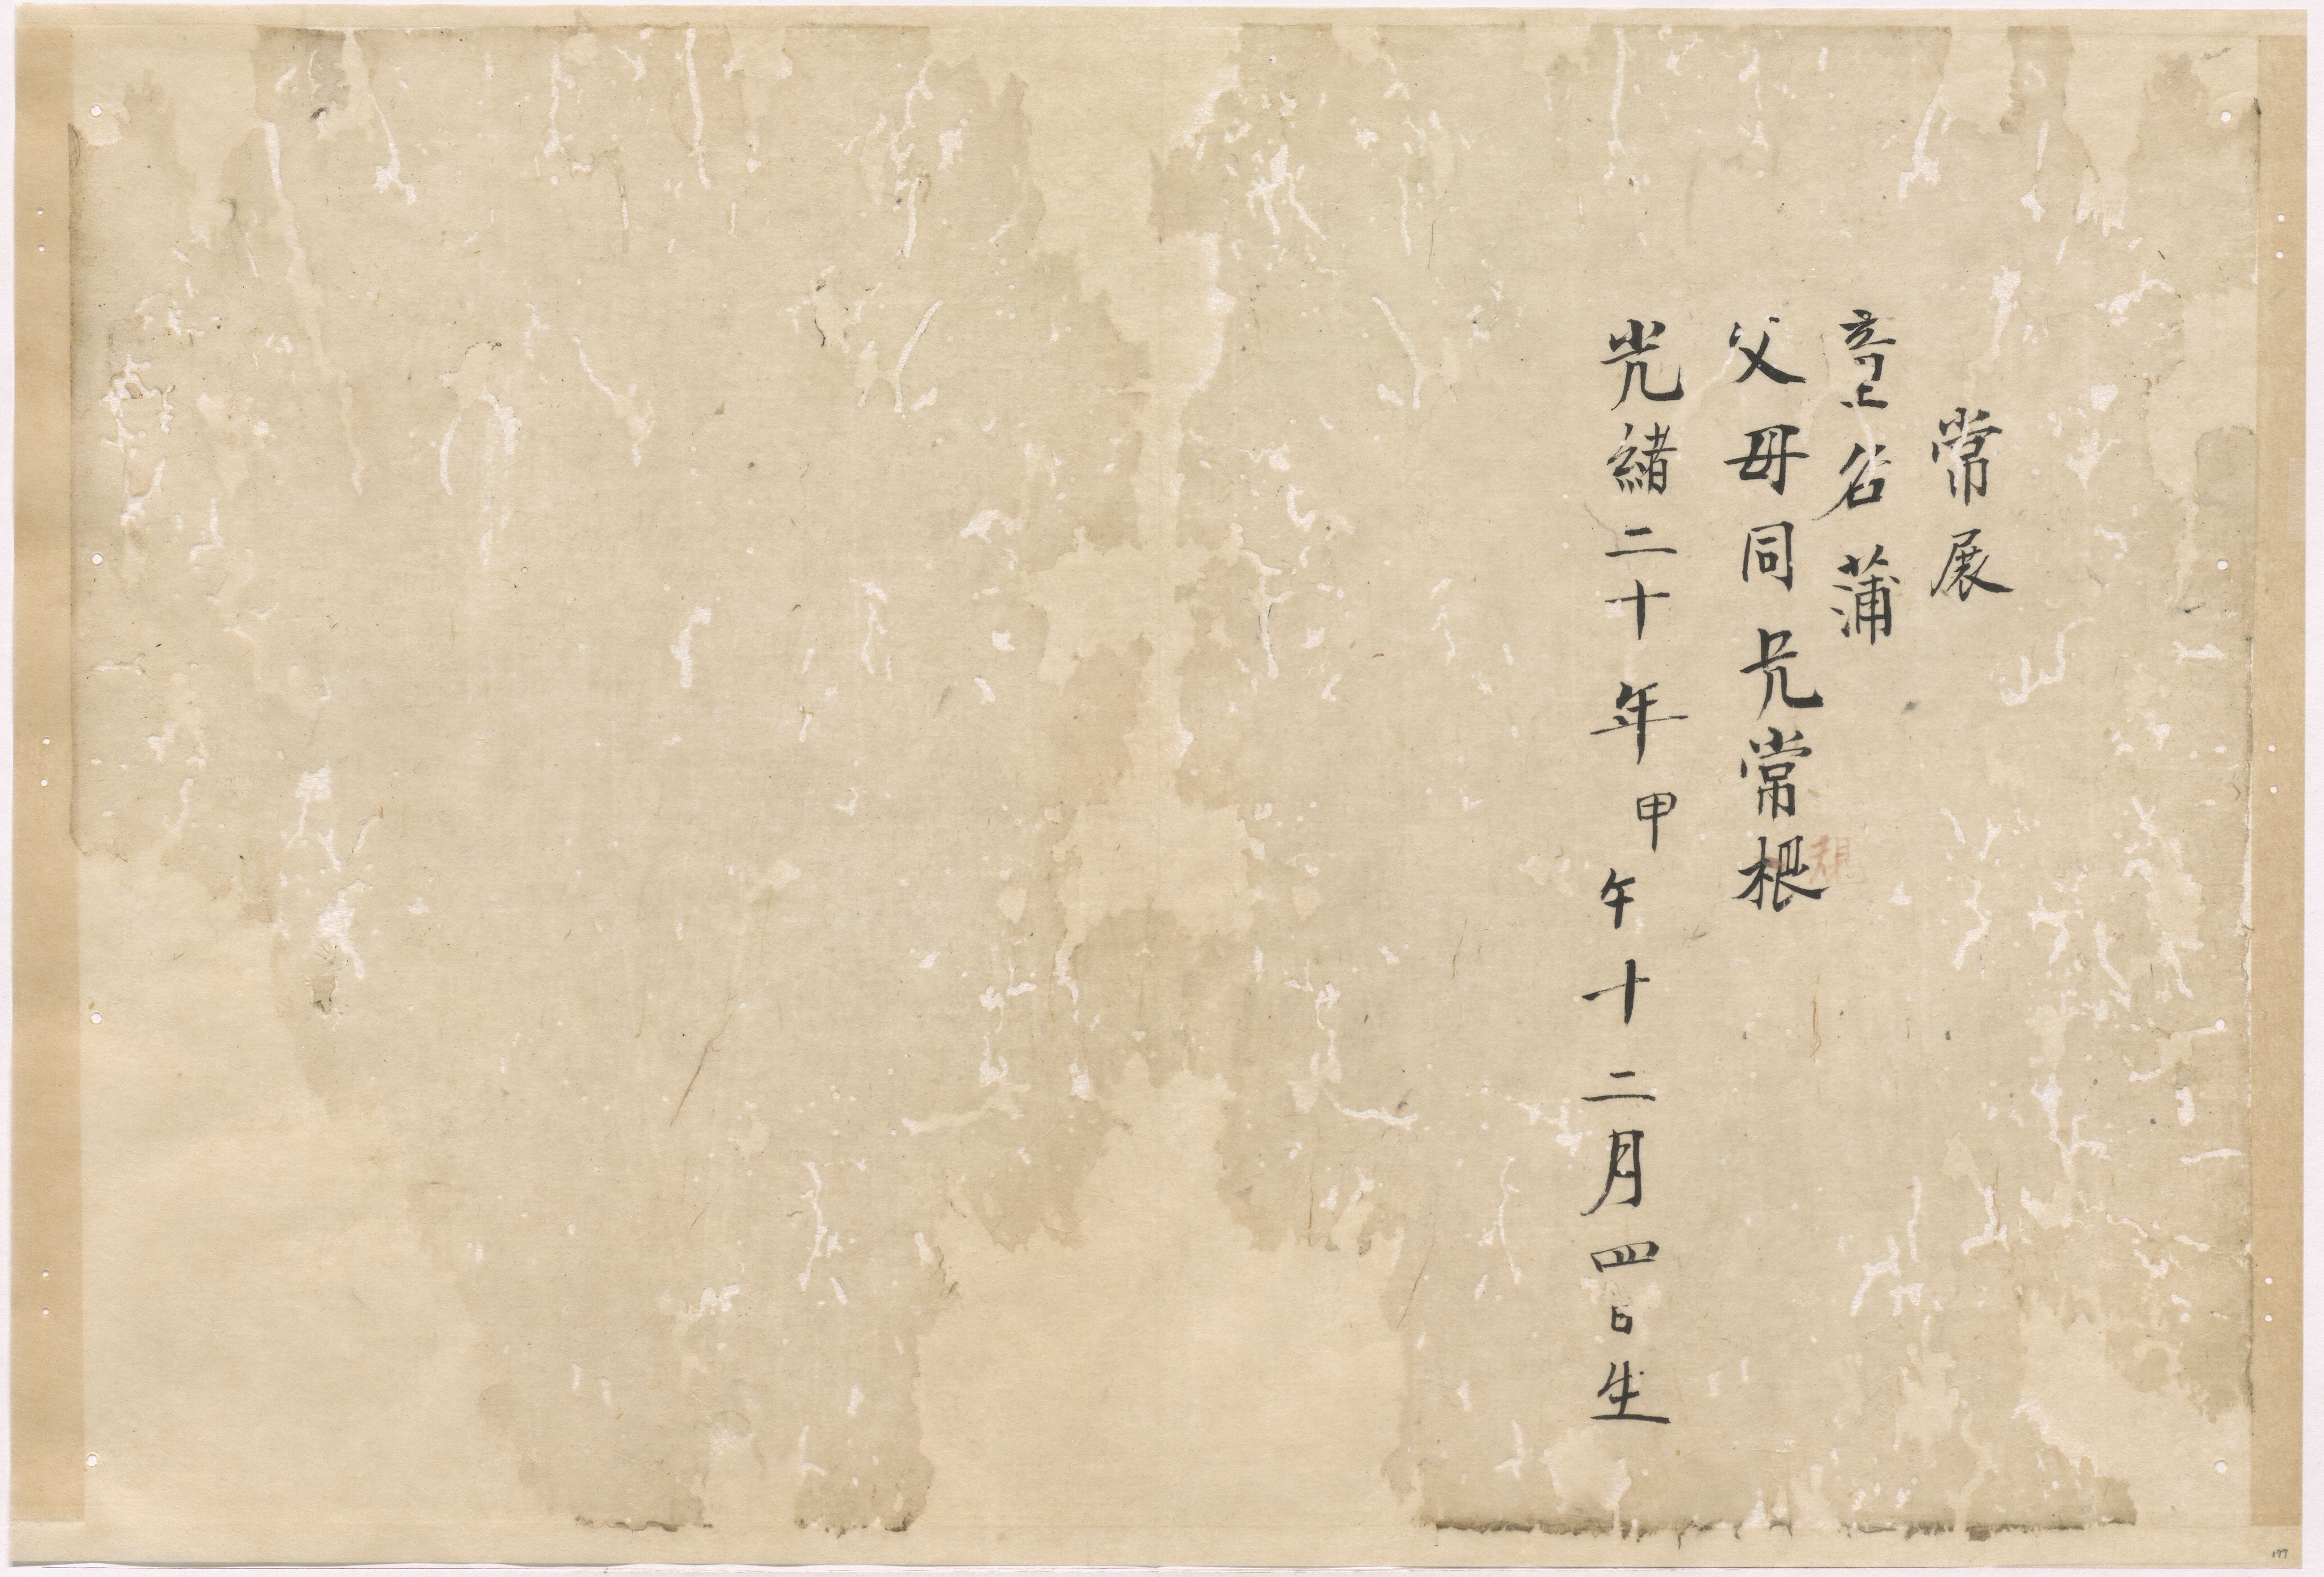 常展
上名蒲
父母同兄常根
光緒二十年甲午十二月四日生